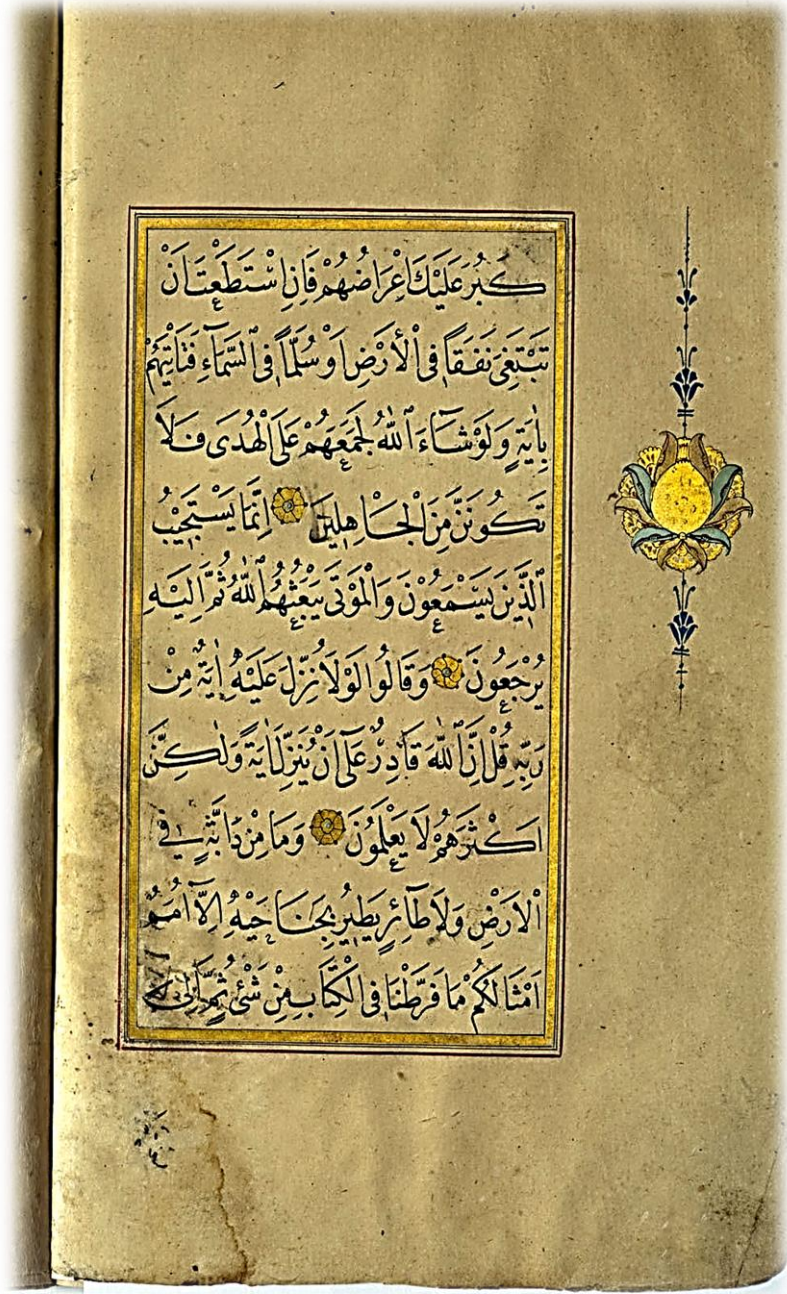 كَبُرَ عَلَيْكَ اِعْرَاضُهُمْ فَاِنِ اسْتَطَعْتَ اَنْ
تَبْتَغِىَ نَفَقاً فِى الْاَرْضِ اَوْ سُلَّماً فِى السَّمَٓاءِ فَتَاْتِيَهُمْ
بِاٰيَةٍ وَلَوْ شَٓاءَ اللّٰهُ لَجَمَعَهُمْ عَلَى الْهُدَى فَلَا
تَكُونَنَّ مِنَ الْجَاهِلِينَ اِنَّمَا يَسْتَجِيبُ
الَّذِينَ يَسْمَعُونَ وَالْمَوْتَى يَبْعَثُهُمُ اللّٰهُ ثُمَّ اِلَيْهِ
يُرْجَعُونَ وَقَالُوا لَوْلَا نُزِّلَ عَلَيْهِ اٰيَةٌ مِنْ
رَبِّهِ قُلْ اِنَّ اللّٰهَ قَادِرٌ عَلَٓى اَنْ يُنَزِّلَ اٰيَةً وَلٰكِنَّ
اَكْثَرَهُمْ لَا يَعْلَمُونَ وَمَا مِنْ دَٓابَّةٍ فِى
الْاَرْضِ وَلَا طَٓائِرٍ يَطِيرُ بِجَنَاحَيْهِ اِلَّٓا اُمَمٌ
اَمْثَالُكُمْ مَا فَرَّطْنَا فِى الْكِتَابِ مِنْ شَىْءٍ ثُمَّ اِلٰى